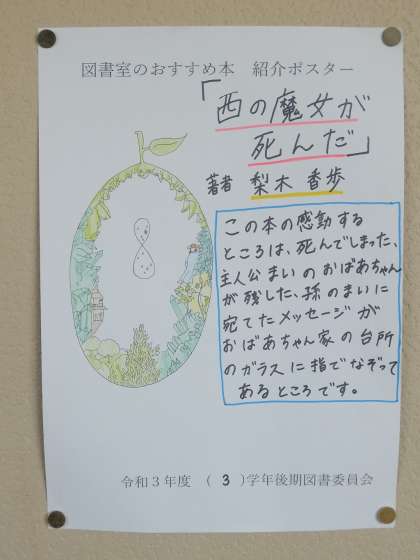 図書室のおすすめ本 紹介ポスター
「西の魔女が
死んだ」
著者 梨木 香歩
この本の感動する
ところは、死んでしまった、
主人公まいのおばあちゃん
が残した、孫のまいに
宛てたメッセージが
おばあちゃん家の台所
のガラスに指でなぞって
あるところです。
令和3年度 (3)学年後期図書委員会